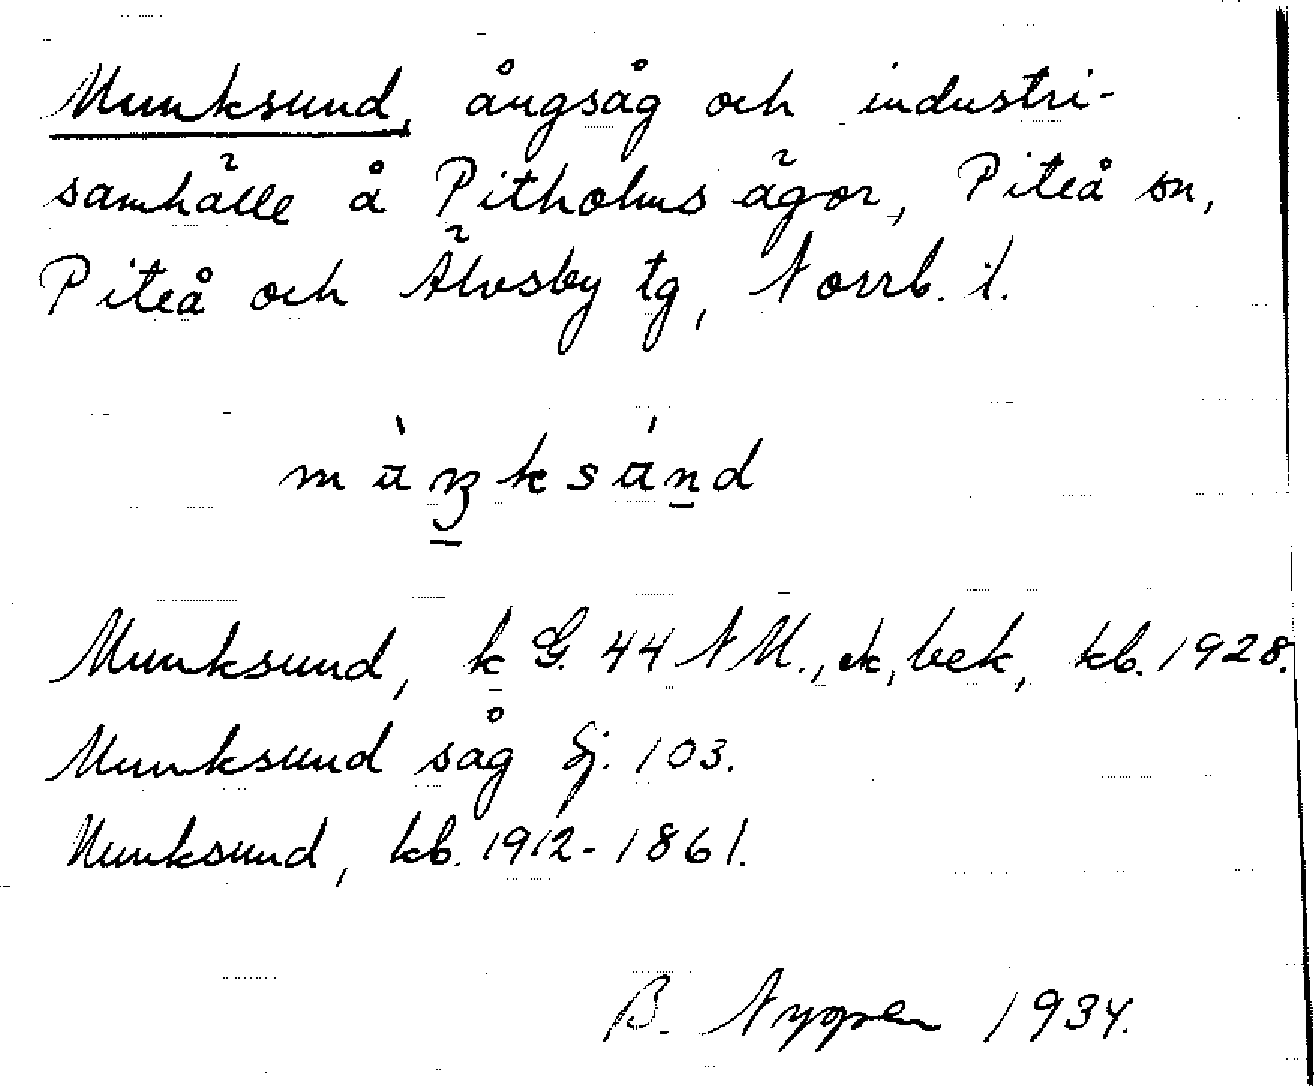 Munksund, ångsåg och industri-
samhälle å Pitholms ägor, Piteå sn,
Piteå och Älvsby tg, Norrb. l.
Munksund, k G. 44 NM., ek, bek, kb. 1928.
Munksund såg Sj. 103.
Munksund, kb. 1912-1861.
B. Nygren 1934.